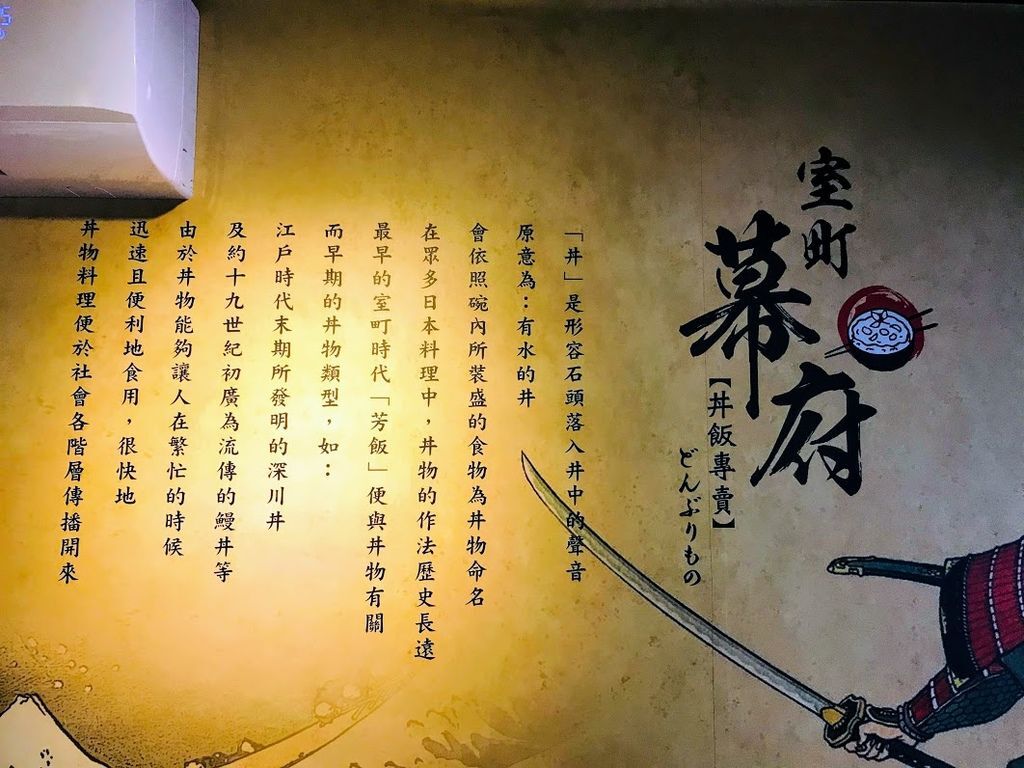 室町
幕府
【丼飯專賣】
どんぶりもの
「丼」是形容石頭落入井中的聲音
原意為：有水的井
會依照碗內所裝盛的食物為丼物命名
在眾多日本料理中，丼物的作法歷史長遠
最早的室町時代「芳飯」便與丼物有關
而早期的丼物類型，如：
江戶時代末期所發明的深川丼
及約十九世紀初廣為流傳的鰻丼等
由於丼物能夠讓人在繁忙的時候
迅速且便利地食用，很快地
丼物料理便於社會各階層傳播開來